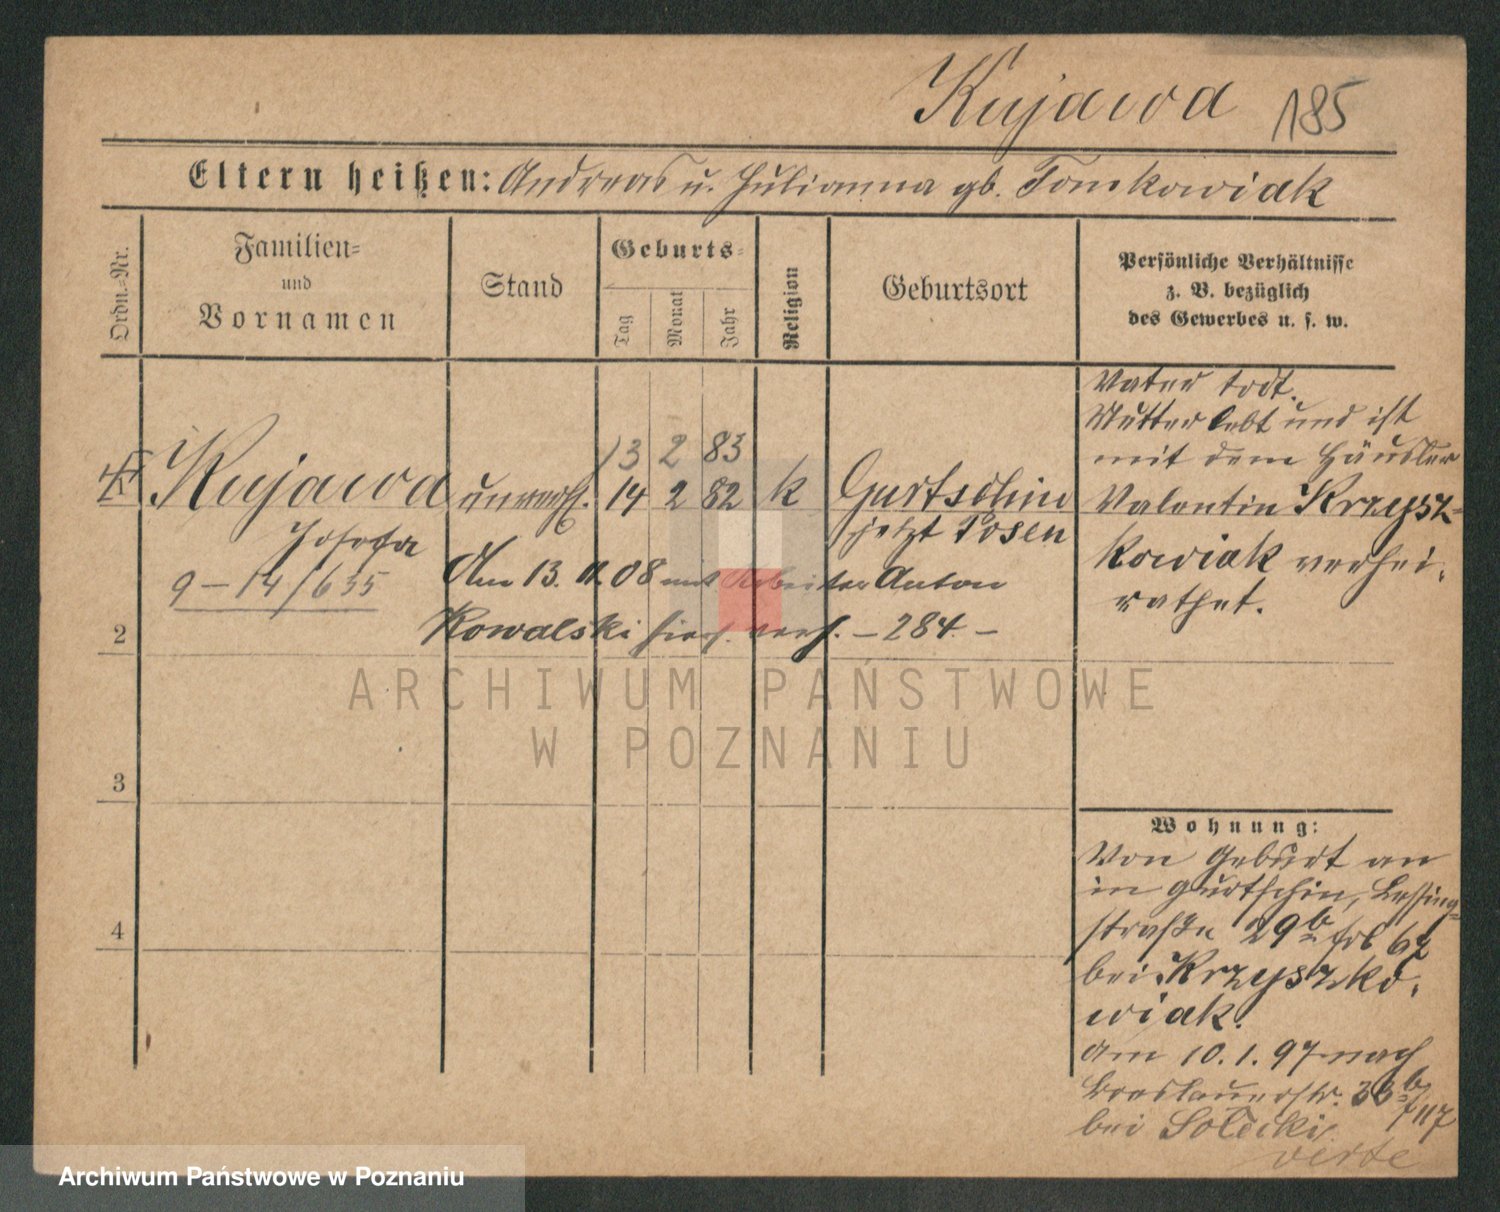 Kujawa 185
Eltern heißen: Andreas u. Julianna gb. Tomkowiak
Ordn.-Nr.
Familien-
und
Vornamen
Stand
Geburts-
Tag
Monat
Jahr
Religion
Geburtsort
Persönliche Verhältnisse
z. B. bezüglich
des Gewerbes u. s. w.
13 2 83
Kujawa unvereh. 14 2 82 k Gurtschin
Josefa jetzt Posen
9-14/635
Am 13. 11. 08 mit Arbeiter Anton
Kowalski hier verh. - 284. -
Vater todt.
Mutter lebt und ist
mit dem Häusler
Valentin Krzysz-
kowiak verhei-
rathet.
2
3
4
Wohnung:
Von Geburt an
in Gurtschin, Lessing-
straße 29b fol 62
bei Krzyszko-
wiak.
Am 10. 1. 97 nach
Breslauerstr. 33b/117
bei Solecki
verte
ARCHIWUM PAŃSTWOWE
W POZNANIU
Archiwum Państwowe w Poznaniu